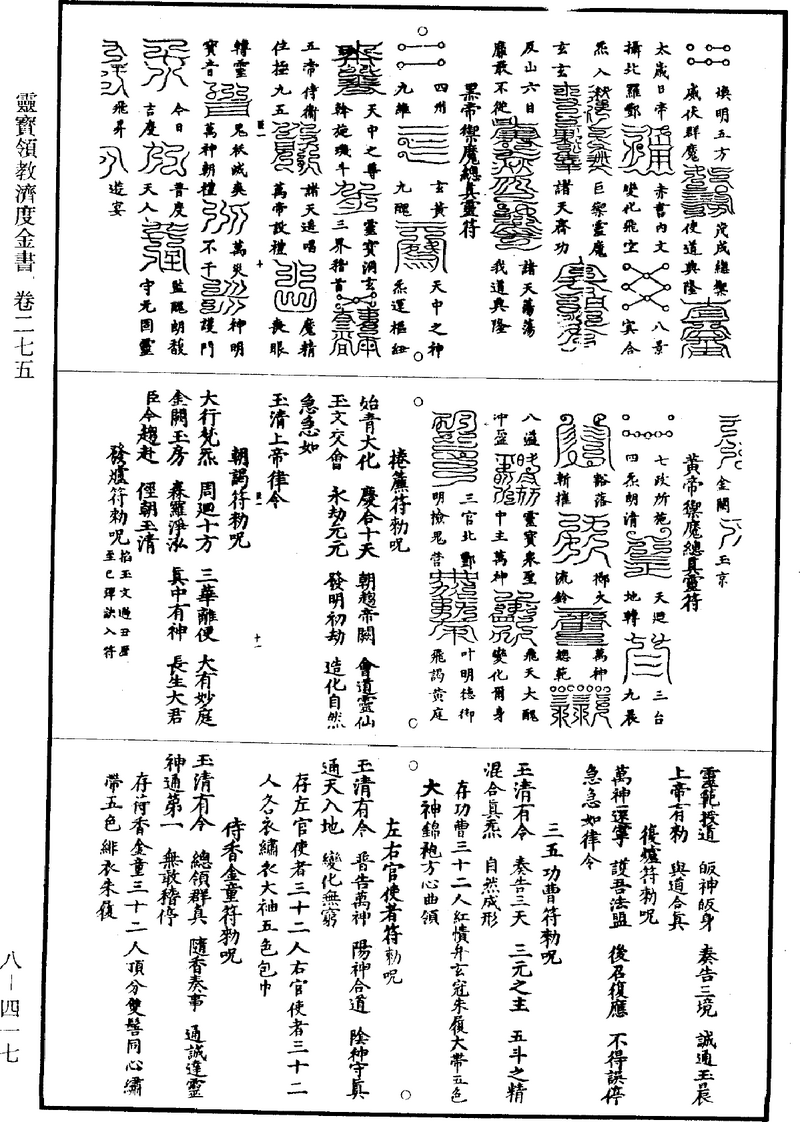 煥明五方
威伏群魔
茂成總禦
使道興隆
太歲日帝
赤書內文
八景
攝北羅酆
變化飛空
冥合
炁入
巨禦靈魔
玄玄
諸天齊功
反山六目
諸天蕩蕩
靡敢不從
我道興隆
黑帝禦魔總真靈符
四州
玄黃
天中之神
九維
九醜
炁運樞紐
天中之尊
靈寶洞玄
斡旋璣斗
三界稽首
五帝侍衛
諸天遥唱
魔精
位極九五
萬帝設禮
喪眼
轉靈
鬼祅滅爽
萬災
神明
寶音
萬神朝禮
不干
護門
今日
普度
監醜朗馥
吉慶
天人
守元固靈
飛昇
遊宴
金闕
玉京
黃帝禦魔總真靈符
七政所施
天廻
三台
四炁朗清
地轉
九晨
豁落
擲火
萬神
斬摧
流鈴
總範
八道
靈寶衆聖
飛天大醜
冲盈
中主萬神
變化爾身
三官北酆
叶明德御
明檢鬼營
飛謁黃庭
捲簾符勑呪
始青大化　慶合十天　朝趨帝闕　會道靈仙
玉文交會　永劫元元　發明初劫　造化自然
急急如
玉清上帝律令
朝謁符勑呪
大行梵炁　周廻十方　三華離便　大有妙庭
金闕玉房　森羅淨泓　真中有神　長生大君
臣今趨赴　俓朝玉清
發爐符勑呪 掐玉文過丑層至巳彈訣入符
靈範授道　皈神皈身　奏告三境　誠通玉晨
上帝有勑　與道合真
復爐符勑呪
萬神還寧　護吾法盟　後召復應　不得誤停
急急如律令
三五功曹符勑呪
玉清有令　奏告三天　三元之主　五斗之精
混合真炁　自然成形
存功曹三十二人紅幘弁玄冠朱履大帶五色
大神錦袍方心曲領
左右官使者符勑呪
玉清有令　普告萬神　陽神合道　陰神守真
通天入地　變化無窮
存左官使者三十二人右官使者三十二
人各衣繡衣大袖五色包巾
侍香金童符勑呪
玉清有令　總領群真　隨香奏事　通誠達靈
神通第一　無敢稽停
存侍香金童三十二人頂分雙髻同心繡
帶五色緋衣朱履
靈寶領教濟度金書　卷二七五
八－四一七